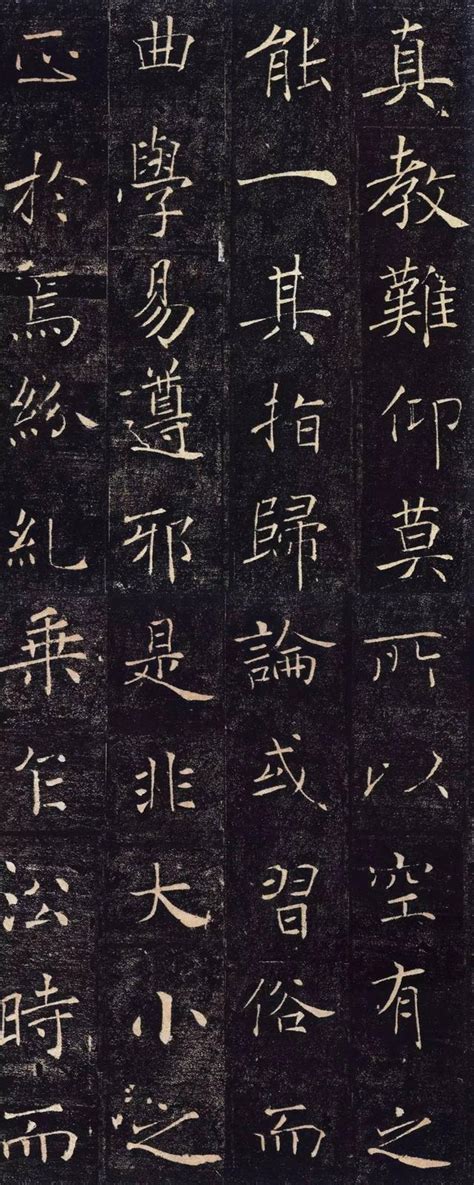 真教難仰莫
能一其指歸
曲學易遵邪
正於焉紛糺
所以空有之
論或習俗而
是非大小之
乘乍㳂時而